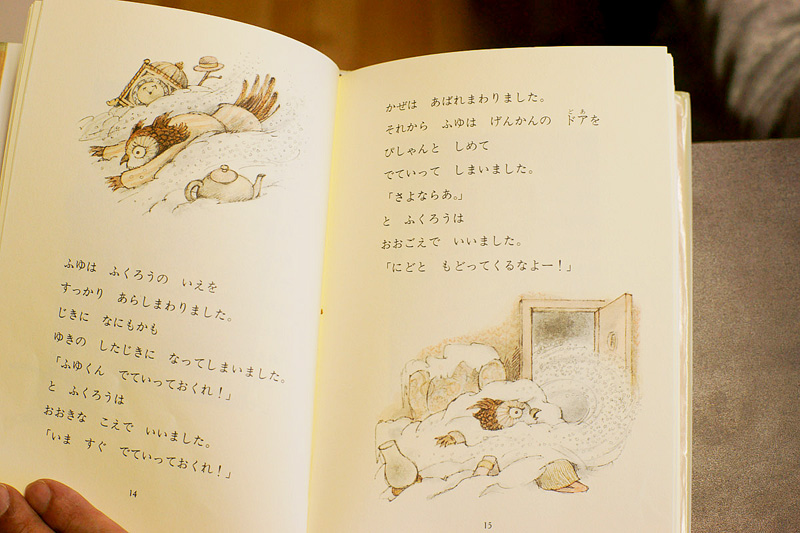 ふゆは ふくろうの いえを
すっかり あらしまわりました。
じきに なにもかも
ゆきの したじきに なってしまいました。
「ふゆくん でていっておくれ!」
と ふくろうは
おおきな こえで いいました。
「いま すぐ でていっておくれ!」
14
かぜは あばれまわりました。
それから ふゆは げんかんの ドアを
どあ
ぴしゃんと しめて
でていって しまいました。
「さよならあ。」
と ふくろうは
おおごえで いいました。
「にどと もどってくるなよー!」
15